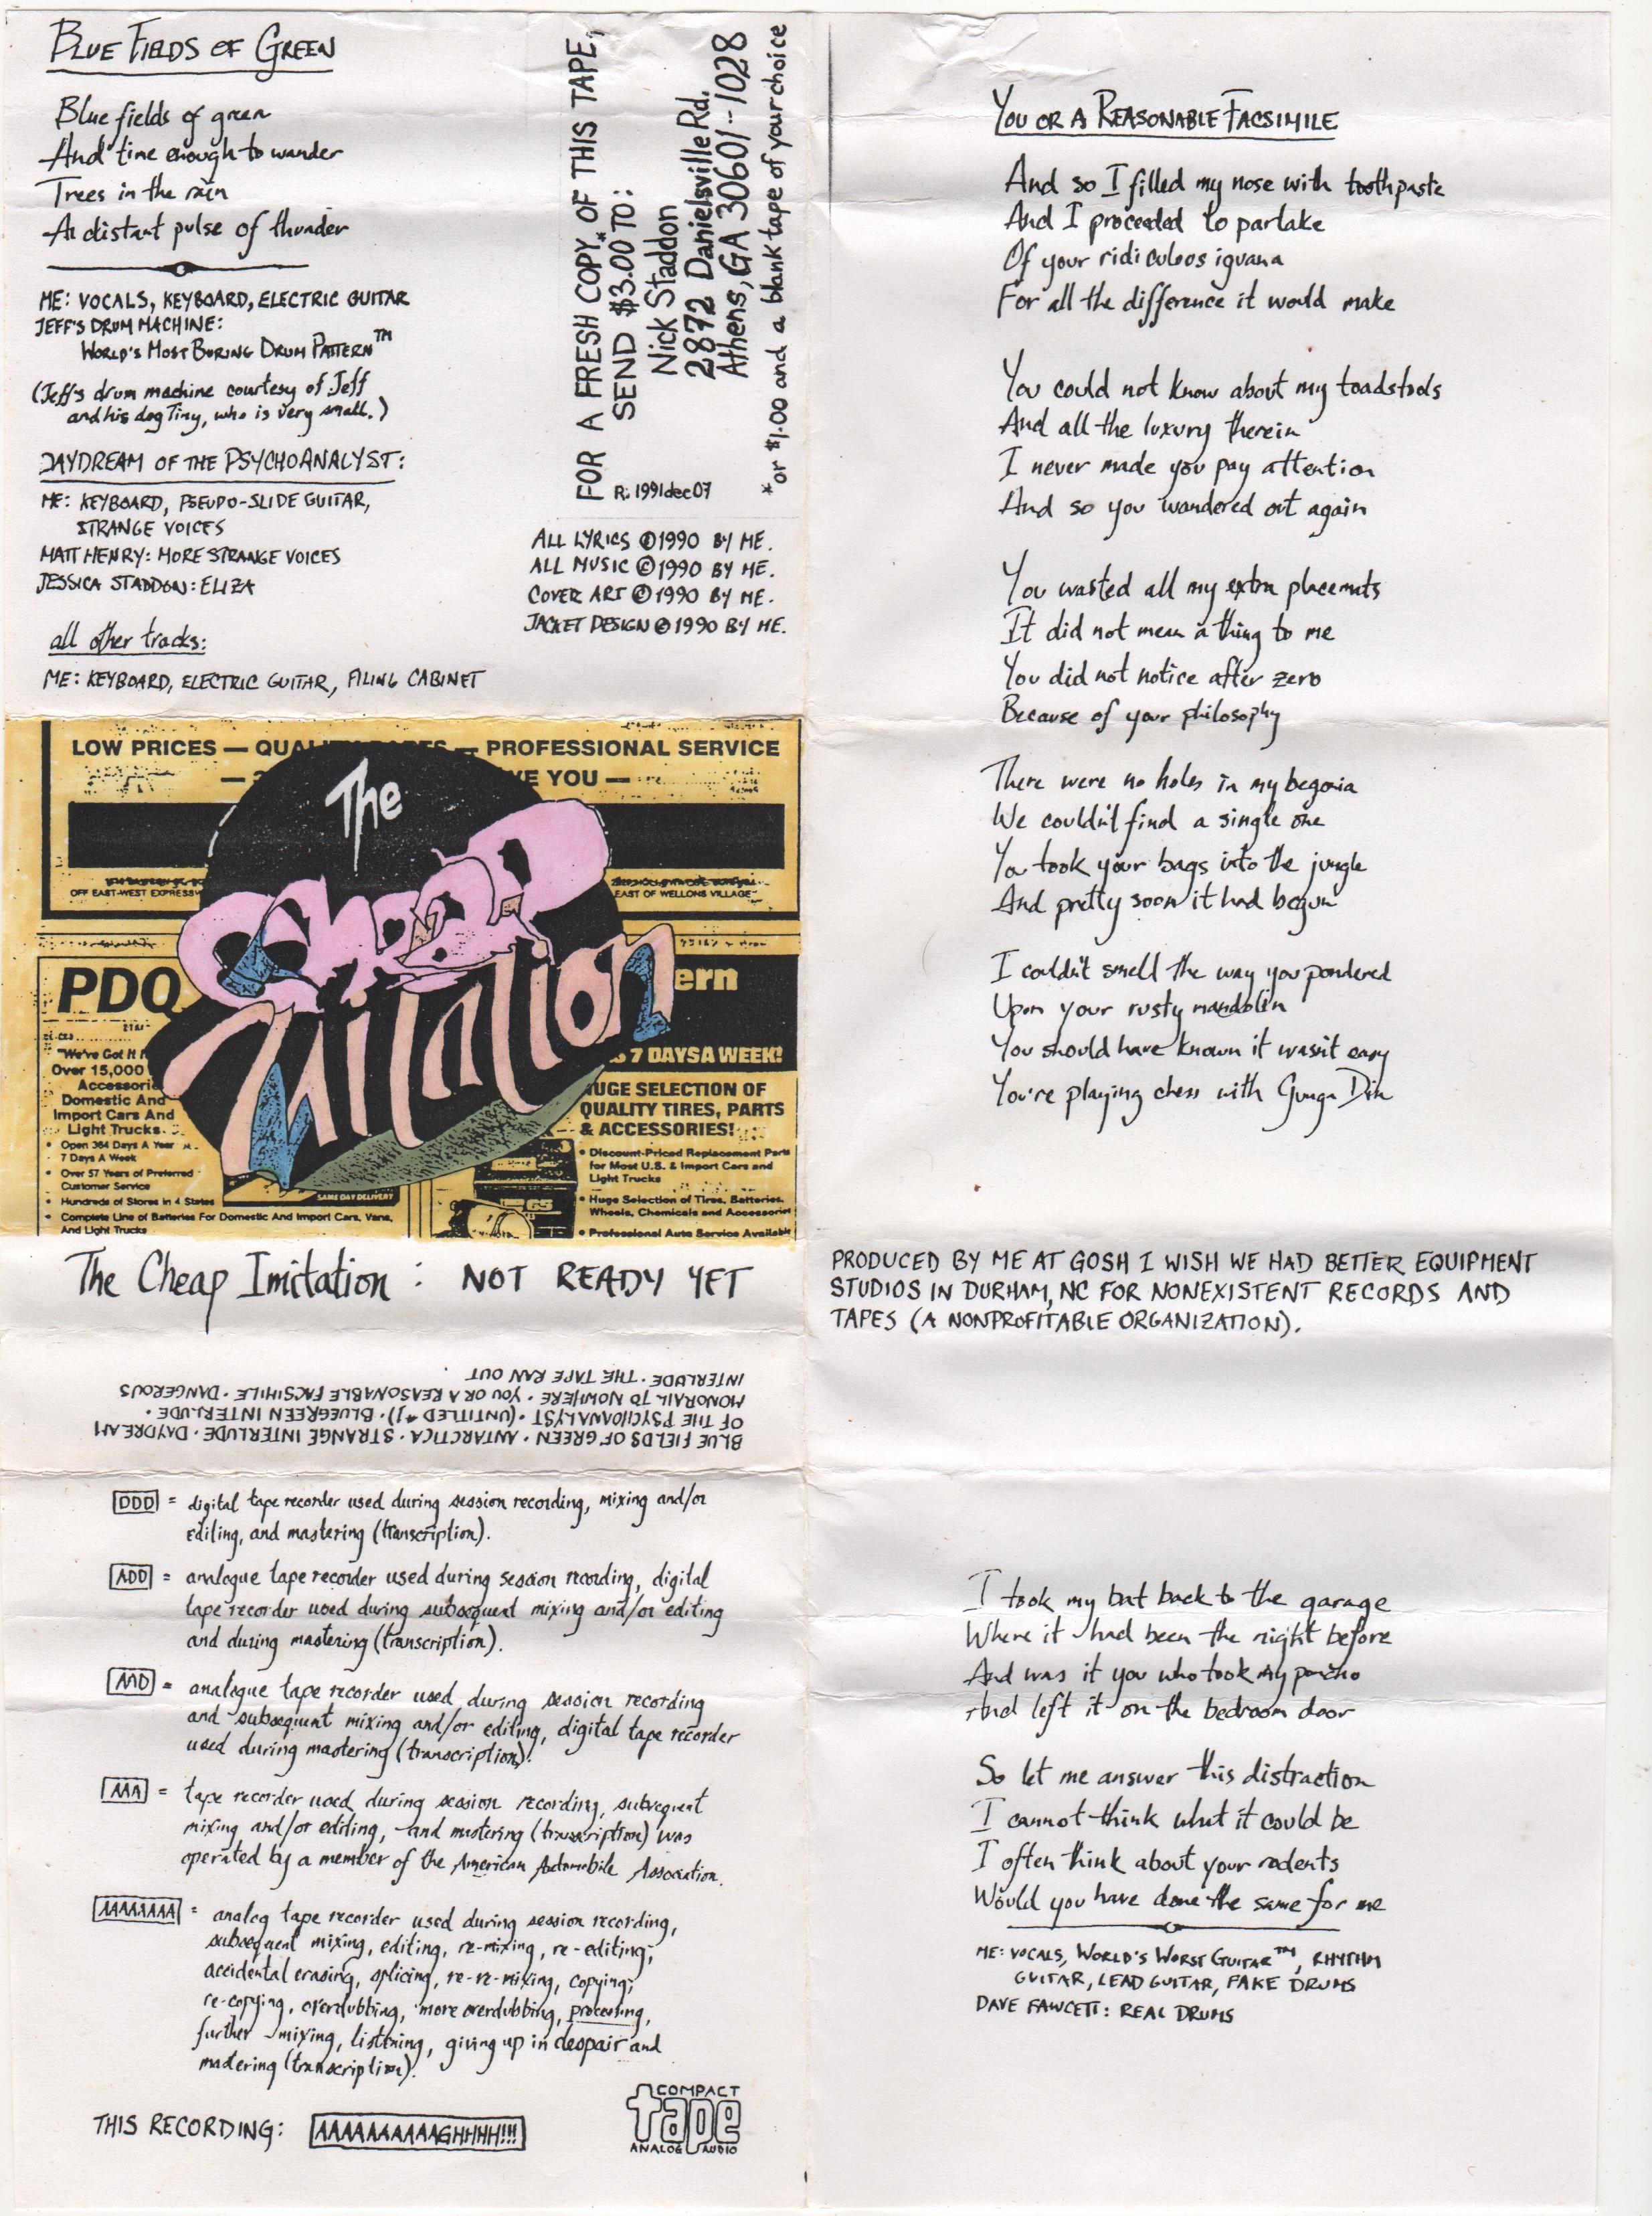 BLUE FIELDS OF GREEN
Blue fields of green
And time enough to wander
Trees in the rain
A distant pulse of thunder
ME: VOCALS, KEYBOARD, ELECTRIC GUITAR
JEFF'S DRUM MACHINE:
WORLD'S MOST BORING DRUM PATTERN™
(Jeff's drum machine courtesy of Jeff
and his dog Tiny, who is very small.)
DAYDREAM OF THE PSYCHOANALYST:
ME: KEYBOARD, PSEUDO-SLIDE GUITAR,
STRANGE VOICES
MATT HENRY: MORE STRANGE VOICES
JESSICA STADDON: ELIZA
all other tracks:
ME: KEYBOARD, ELECTRIC GUITAR, FILING CABINET
FOR A FRESH COPY OF THIS TAPE,
SEND $3.00* TO:
Nick Staddon
2872 Danielsville Rd.
Athens, GA 30601-1028
*or $1.00 and a blank tape of your choice
R: 1991dec07
ALL LYRICS ©1990 BY ME.
ALL MUSIC ©1990 BY ME.
COVER ART ©1990 BY ME.
JACKET DESIGN ©1990 BY ME.
LOW PRICES — QUALITY PARTS — PROFESSIONAL SERVICE
VE YOU —
The
CHEAP
Imitation
OFF EAST-WEST EXPRESSW
EAST OF WELLONS VILLAGE
PDQ
ern
7 DAYS A WEEK!
"We've Got It
Over 15,000
Accessorie
Domestic And
Import Cars And
Light Trucks.
• Open 364 Days A Year
7 Days A Week
• Over 57 Years of Preferred
Customer Service
• Hundreds of Stores in 4 States
• Complete Line of Batteries For Domestic And Import Cars, Vans,
And Light Trucks
SAME DAY DELIVERY
HUGE SELECTION OF
QUALITY TIRES, PARTS
& ACCESSORIES!
• Discount-Priced Replacement Parts
for Most U.S. & Import Cars and
Light Trucks
• Huge Selection of Tires, Batteries,
Wheels, Chemicals and Accessories
• Professional Auto Service Available
The Cheap Imitation: NOT READY YET
BLUE FIELDS OF GREEN · ANTARCTICA · STRANGE INTERLUDE · DAYDREAM
OF THE PSYCHOANALYST · (UNTITLED #1) · BLUEGREEN INTERLUDE ·
MONORAIL TO NOWHERE · YOU OR A REASONABLE FACSIMILE · DANGEROUS
INTERLUDE · THE TAPE RAN OUT
DDD = digital tape recorder used during session recording, mixing and/or
editing, and mastering (transcription).
ADD = analogue tape recorder used during session recording, digital
tape recorder used during subsequent mixing and/or editing
and during mastering (transcription).
AAD = analogue tape recorder used during session recording
and subsequent mixing and/or editing, digital tape recorder
used during mastering (transcription).
AAA = tape recorder used during session recording, subsequent
mixing and/or editing, and mastering (transcription) was
operated by a member of the American Automobile Association.
AAAAAAAA = analog tape recorder used during session recording,
subsequent mixing, editing, re-mixing, re-editing,
accidental erasing, splicing, re-re-mixing, copying,
re-copying, overdubbing, more overdubbing, processing,
further mixing, listening, giving up in despair and
mastering (transcription).
THIS RECORDING: AAAAAAAAAAGHHHH!!!
COMPACT
tape
ANALOG AUDIO
YOU OR A REASONABLE FACSIMILE
And so I filled my nose with toothpaste
And I proceeded to partake
Of your ridiculous iguana
For all the difference it would make
You could not know about my toadstools
And all the luxury therein
I never made you pay attention
And so you wandered out again
You wasted all my extra placemats
It did not mean a thing to me
You did not notice after zero
Because of your philosophy
There were no holes in my begonia
We couldn't find a single one
You took your bags into the jungle
And pretty soon it had begun
I couldn't smell the way you pondered
Upon your rusty mandolin
You should have known it wasn't easy
You're playing chess with Gunga Din
PRODUCED BY ME AT GOSH I WISH WE HAD BETTER EQUIPMENT
STUDIOS IN DURHAM, NC FOR NONEXISTENT RECORDS AND
TAPES (A NONPROFITABLE ORGANIZATION).
I took my bat back to the garage
Where it had been the night before
And was it you who took my poncho
And left it on the bedroom door
So let me answer this distraction
I cannot think what it could be
I often think about your rodents
Would you have done the same for me
ME: VOCALS, WORLD'S WORST GUITAR™, RHYTHM
GUITAR, LEAD GUITAR, FAKE DRUMS
DAVE FAWCETT: REAL DRUMS